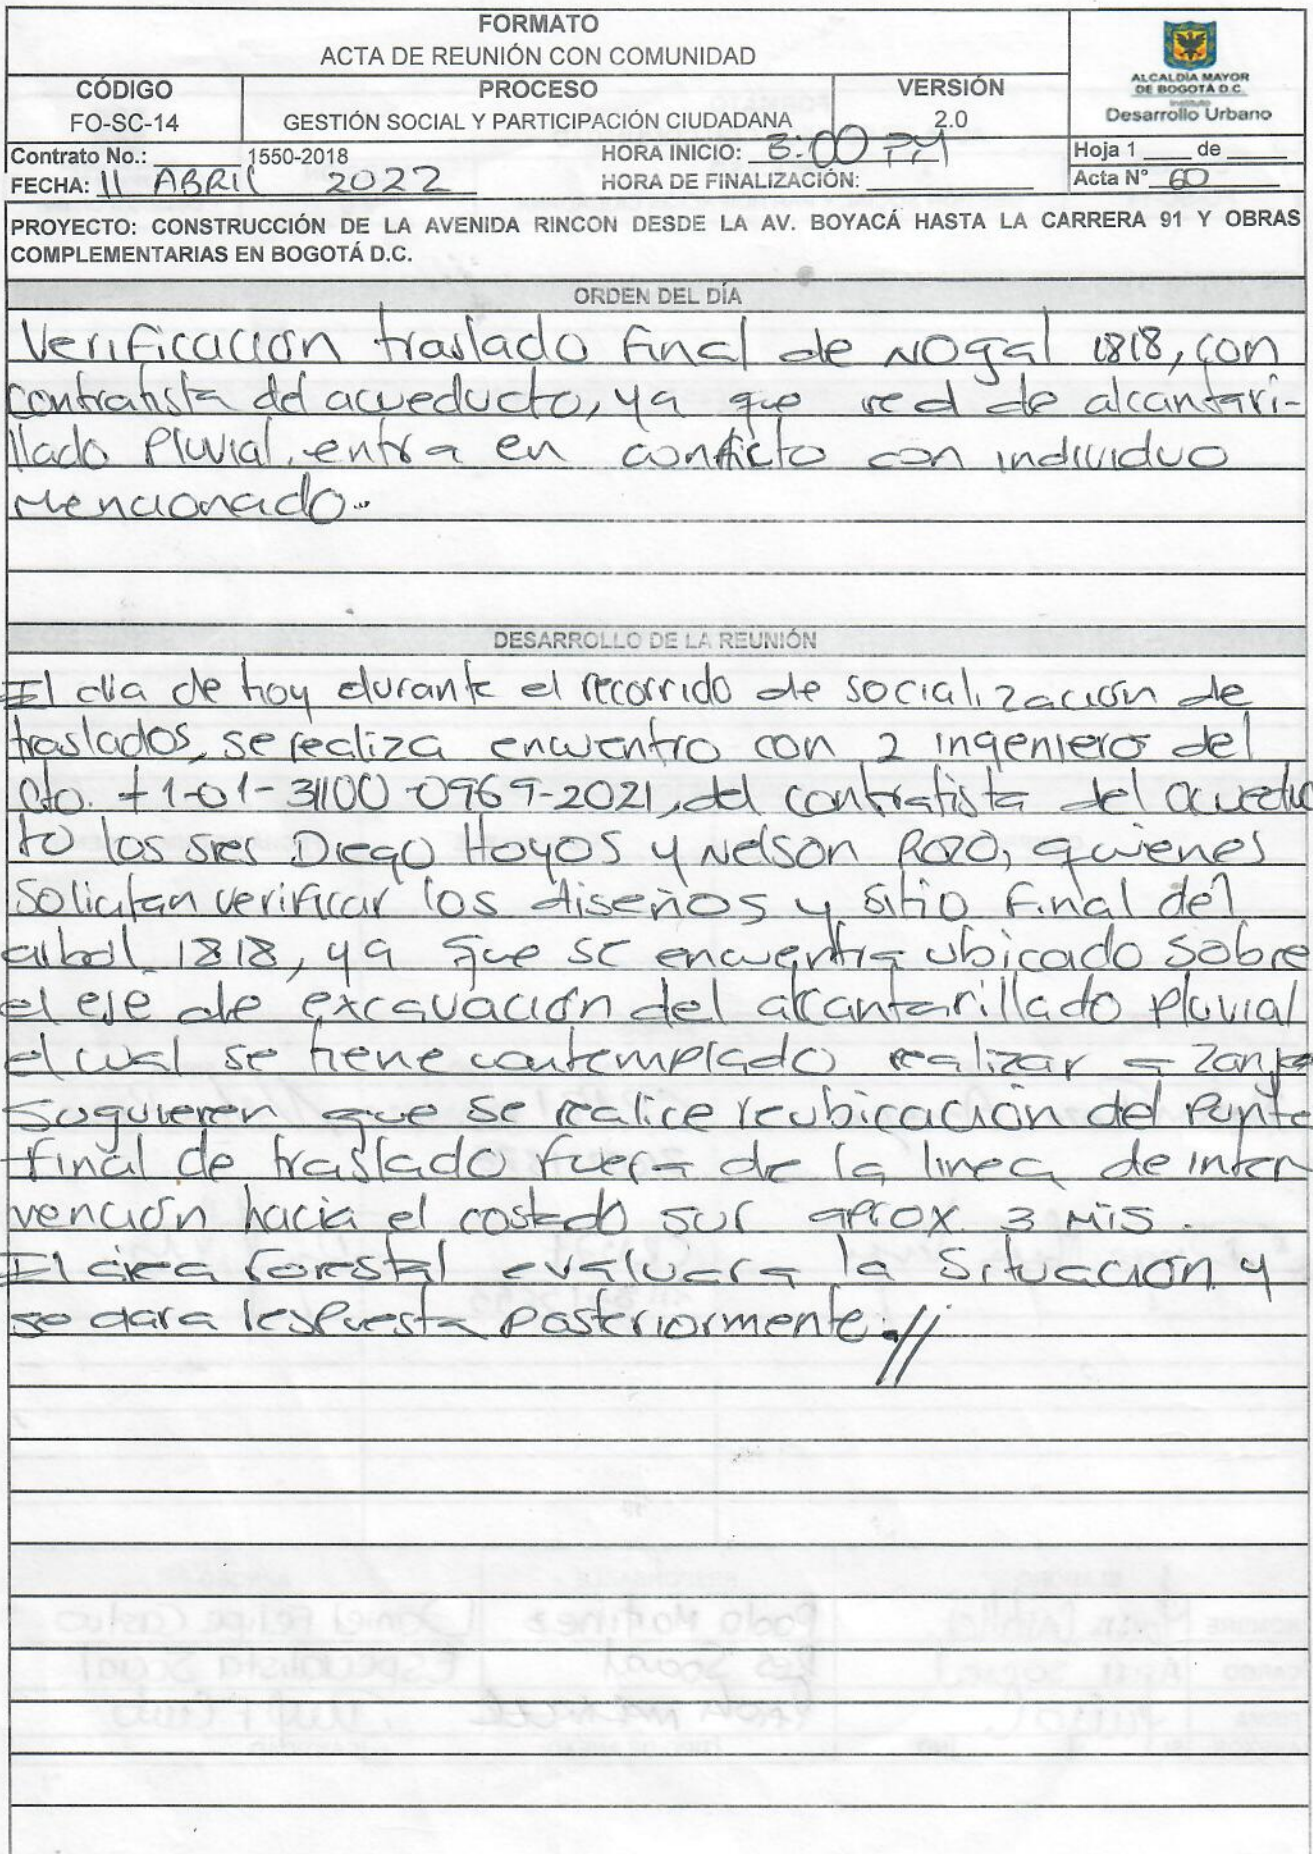 FORMATO
ACTA DE REUNIÓN CON COMUNIDAD
CÓDIGO
FO-SC-14
PROCESO
GESTIÓN SOCIAL Y PARTICIPACIÓN CIUDADANA
VERSIÓN
2.0
ALCALDÍA MAYOR
DE BOGOTÁ D.C.
Instituto
Desarrollo Urbano
Contrato No.: 1550-2018 HORA INICIO: 3:00 PM
Hoja 1 ____ de ____
FECHA: 11 ABRIL 2022 HORA DE FINALIZACIÓN:
Acta N° 60
PROYECTO: CONSTRUCCIÓN DE LA AVENIDA RINCON DESDE LA AV. BOYACÁ HASTA LA CARRERA 91 Y OBRAS
COMPLEMENTARIAS EN BOGOTÁ D.C.
ORDEN DEL DÍA
Verificación traslado final de Nogal 1818, con
contratista del acueducto, ya que red de alcantari-
llado Pluvial, entra en conflicto con individuo
Mencionado.
DESARROLLO DE LA REUNIÓN
El día de hoy durante el recorrido de socialización de
traslados, se realiza encuentro con 2 ingeniero del
Cto. # 1-01-31100-0969-2021, del contratista del acueduc
to los sres Diego Hoyos y Nelson Rozo, quienes
Solicitan verificar los diseños y sitio Final del
arbol 1818, ya que se encuentra ubicado sobre
el eje de excavación del alcantarillado pluvial
el cual se tiene contemplado realizar a Zanja
Suguieren que se realice reubicación del Punto
Final de traslado fuera de la linea de inter
vención hacia el costado sur aprox. 3 Mts.
El área forestal evaluara la situación y
se dara respuesta posteriormente.//